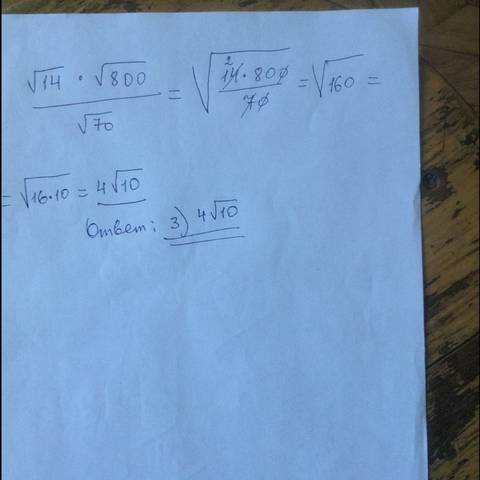 √14 · √800 / √70 = √(14 · 800 / 70) = √160 =
2
= √16·10 = 4√10
Ответ: 3) 4√10